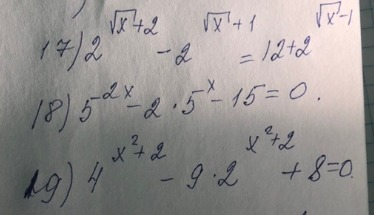 17) 2^{√x+2} - 2^{√x+1} = 12+2^{√x-1}
18) 5^{2x} - 2 · 5^x - 15 = 0.
19) 4^{x²+2} - 9 · 2^{x²+2} + 8 = 0.